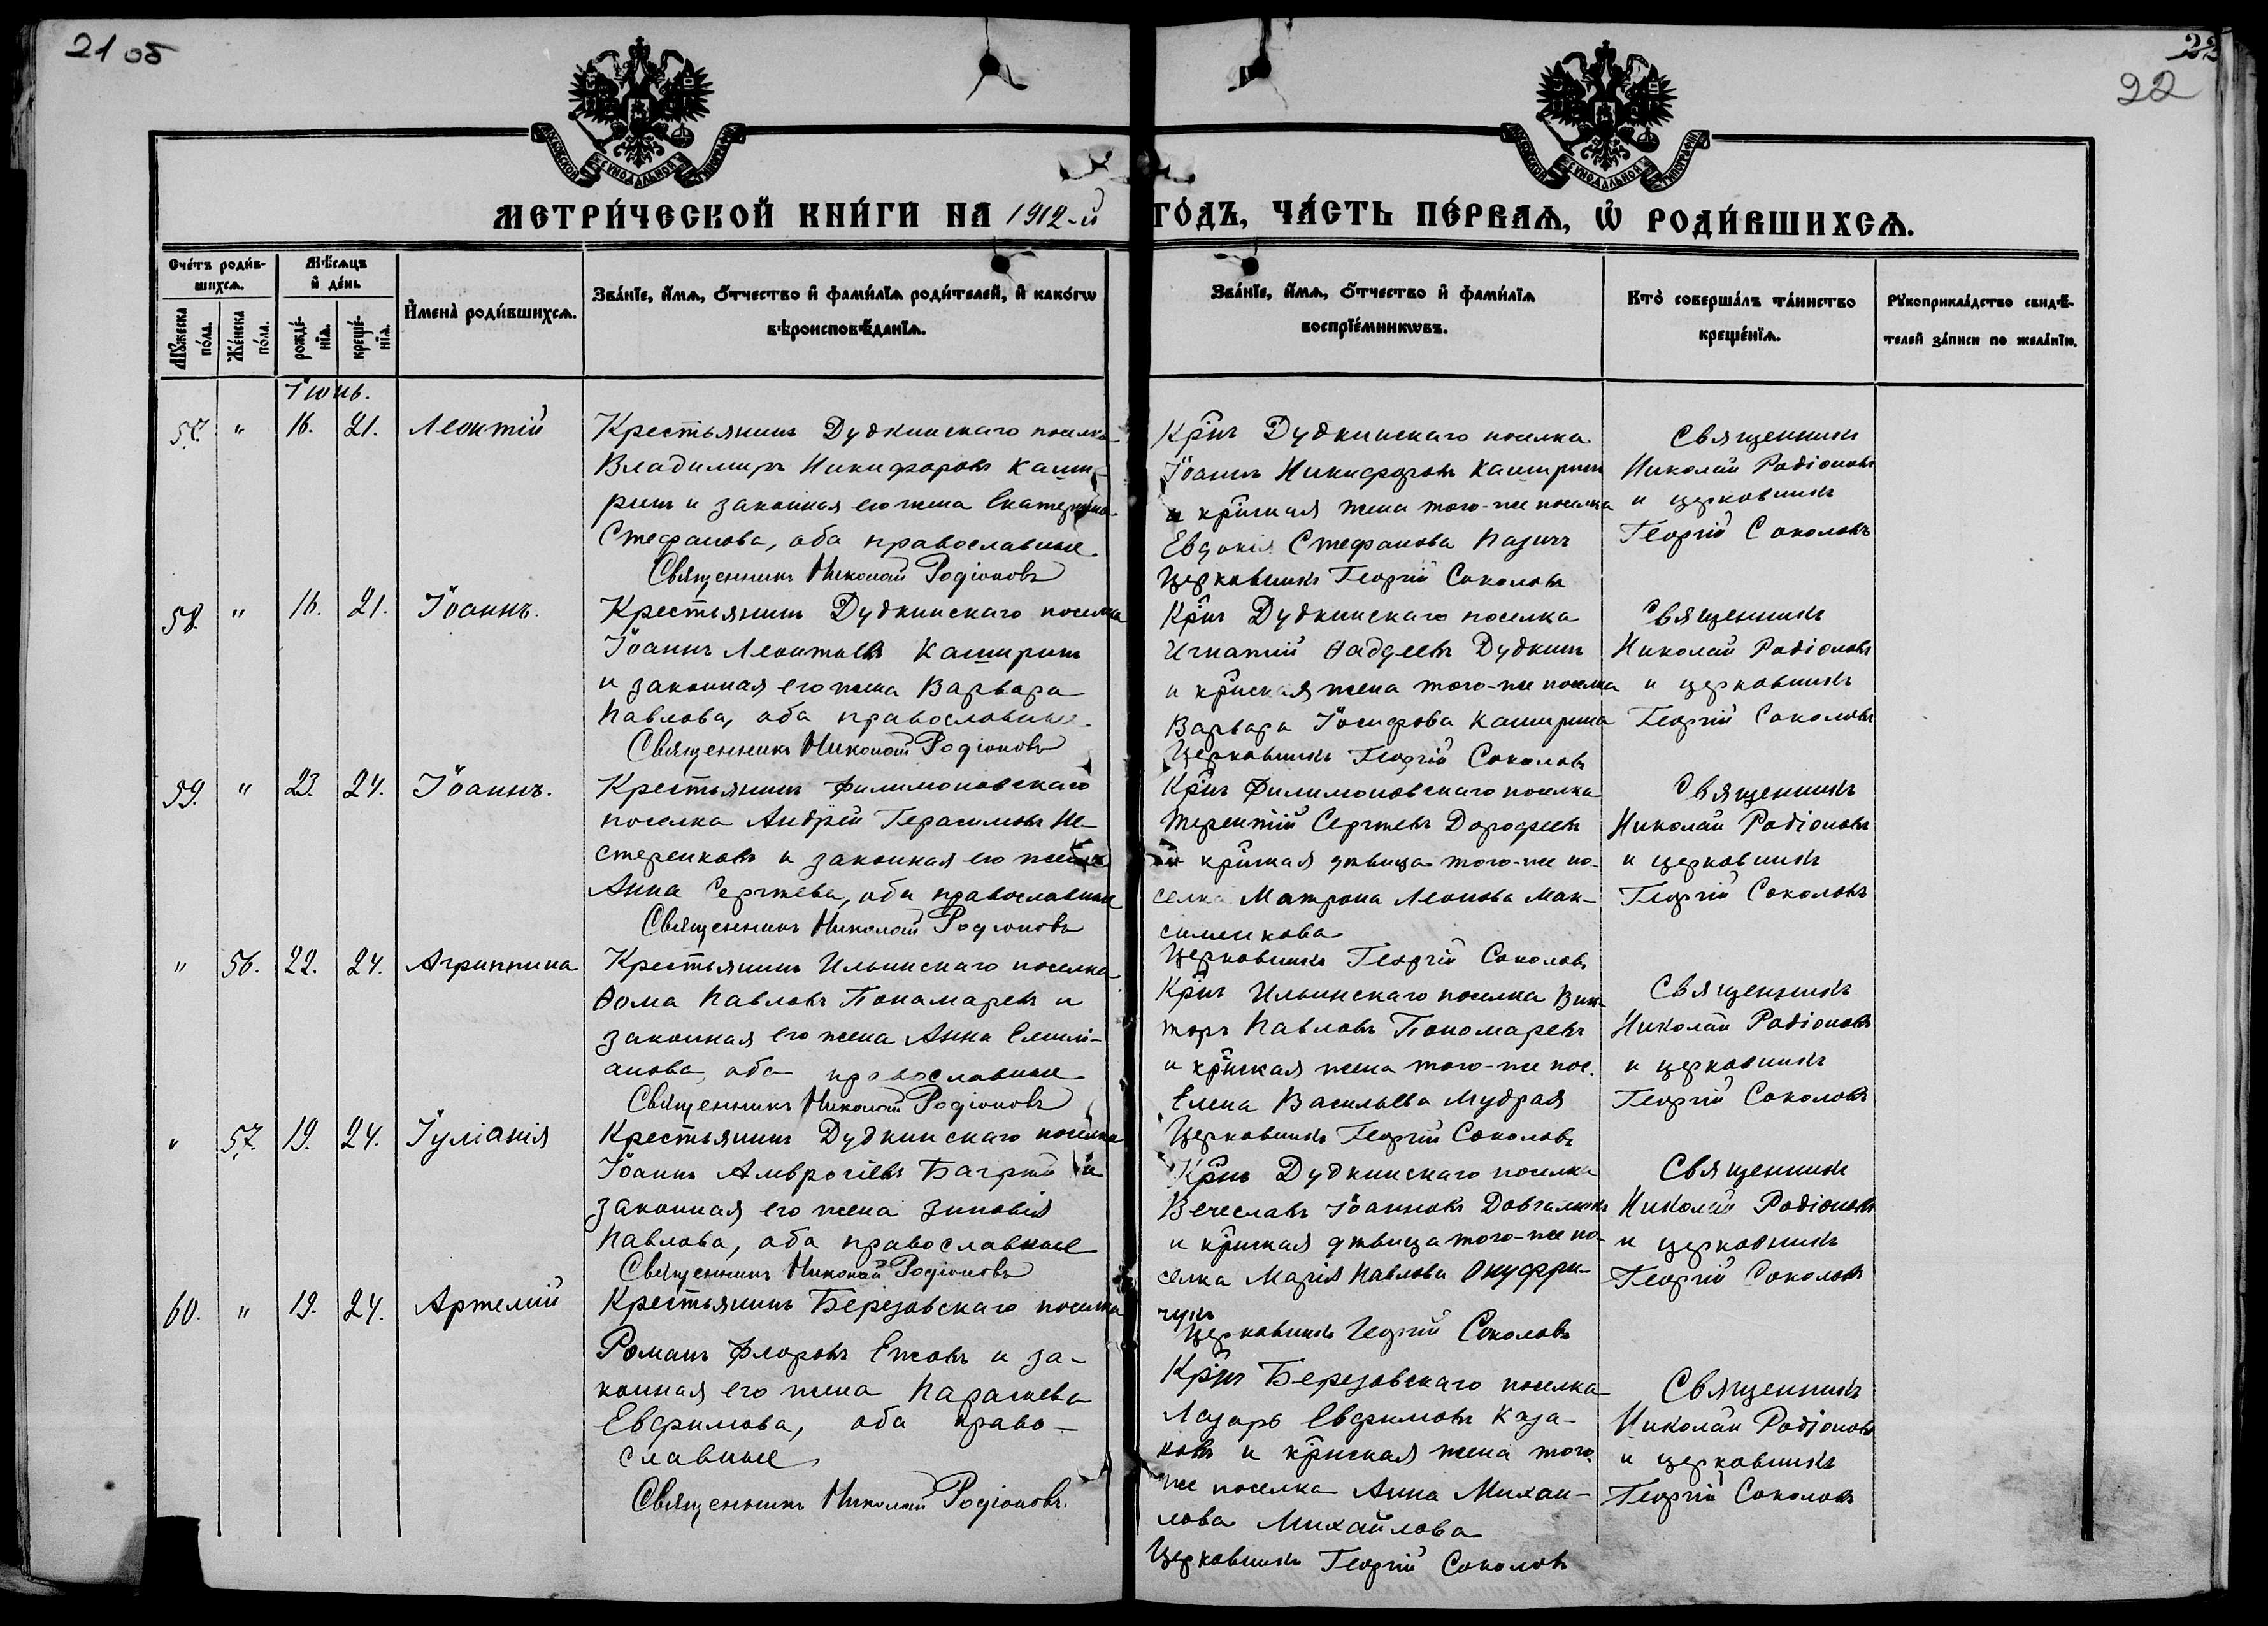 21 об
22
22
МОСКОВСКОЙ СѴНОДАЛЬНОЙ ТИПОГРАФІИ
МОСКОВСКОЙ СѴНОДАЛЬНОЙ ТИПОГРАФІИ
МЕТРИ́ЧЕСКОЙ КНИ́ГИ НА 1912-й ГО́ДЪ, ЧА́СТЬ ПЕ́РВАѦ, Ѡ҆ РОДИ́ВШИХСѦ.
Сче́тъ роди́в-
шихсѧ.
Мѣ́сѧцъ
и҆ де́нь
И҆мена̀ роди́вшихсѧ.
Зва́нїе, и҆́мѧ, ѻ҆́тчество и҆ фами́лїѧ роди́телей, и҆ како́гѡ
вѣроисповѣ́данїѧ.
Зва́нїе, и҆́мѧ, ѻ҆́тчество и҆ фами́лїѧ
воспрїе́мникѡвъ.
Кто̀ соверша́лъ та́инство
креще́нїѧ.
Рꙋкоприкла́дство свидѣ́-
телей за́писи по жела́нїю.
Мꙋ́жеска
по́ла.
Же́нска
по́ла.
рожде́-
нїѧ.
креще́-
нїѧ.
Іюнь.
57. " 16. 21. Леонтій
Крестьянинъ Дудкинскаго поселка
Владимиръ Никифоровъ Каши-
ринъ и законная его жена Екатерина
Стефанова, оба православные
Священникъ Николай Родіоновъ
Кр̃нъ Дудкинскаго поселка
Іоаннъ Никифоровъ Каширинъ
и кр̃нская жена того-же поселка
Евдокія Стефанова Назичъ
Церковникъ Георгій Соколовъ
Священникъ
Николай Родіоновъ
и церковникъ
Георгій Соколовъ
58. " 16. 21. Іоаннъ.
Крестьянинъ Дудкинскаго поселка
Іоаннъ Леонтьевъ Каширинъ
и законная его жена Варвара
Павлова, оба православные.
Священникъ Николай Родіоновъ
Кр̃нъ Дудкинскаго поселка
Игнатій Ѳаддеевъ Дудкинъ
и кр̃нская жена того-же поселка
Варвара Іосифова Каширина
Церковникъ Георгій Соколовъ
Священникъ
Николай Родіоновъ
и церковникъ
Георгій Соколовъ
59. " 23. 24. Іоаннъ.
Крестьянинъ Филимоновскаго
поселка Андрей Герасимовъ Не-
стеренковъ и законная его жена
Анна Сергѣева, оба православные
Священникъ Николай Родіоновъ
Кр̃нъ Филимоновскаго поселка
Терентій Сергѣевъ Дорофеевъ
и кр̃нская дѣвица того-же по-
селка Матрона Леонова Мак-
сименкова
Церковникъ Георгій Соколовъ
Священникъ
Николай Родіоновъ
и церковникъ
Георгій Соколовъ
" 56. 22. 24. Агриппина
Крестьянинъ Ильинскаго поселка
Ѳома Павловъ Пономаревъ и
законная его жена Анна Емили-
анова, оба православные
Священникъ Николай Родіоновъ
Кр̃нъ Ильинскаго поселка Вик-
торъ Павловъ Пономаревъ
и кр̃нская жена того-же пос.
Елена Васильева Мудрая
Церковникъ Георгій Соколовъ
Священникъ
Николай Родіоновъ
и церковникъ
Георгій Соколовъ
" 57. 19. 24. Іуліанія
Крестьянинъ Дудкинскаго поселка
Іоаннъ Амвросіевъ и
законная его жена Зиновія
Павлова, оба православные
Священникъ Николай Родіоновъ
Кр̃нъ Дудкинскаго поселка
Вечеславъ Іоанновъ Довгалюкъ
и кр̃нская дѣвица того-же по-
селка Марія Павлова Онуфри-
чукъ
Церковникъ Георгій Соколовъ
Священникъ
Николай Родіоновъ
и церковникъ
Георгій Соколовъ
60. " 19. 24. Артемій
Крестьянинъ Березовскаго поселка
Романъ Флоровъ Ежовъ и за-
конная его жена Параскева
Евфимова, оба право-
славные
Священникъ Николай Родіоновъ.
Кр̃нъ Березовскаго поселка
Лазарь Евфимовъ Каза-
ковъ и кр̃нская жена того-
же поселка Анна Михаи-
лова Михайлова
Церковникъ Георгій Соколовъ
Священникъ
Николай Родіоновъ
и церковникъ
Георгій Соколовъ